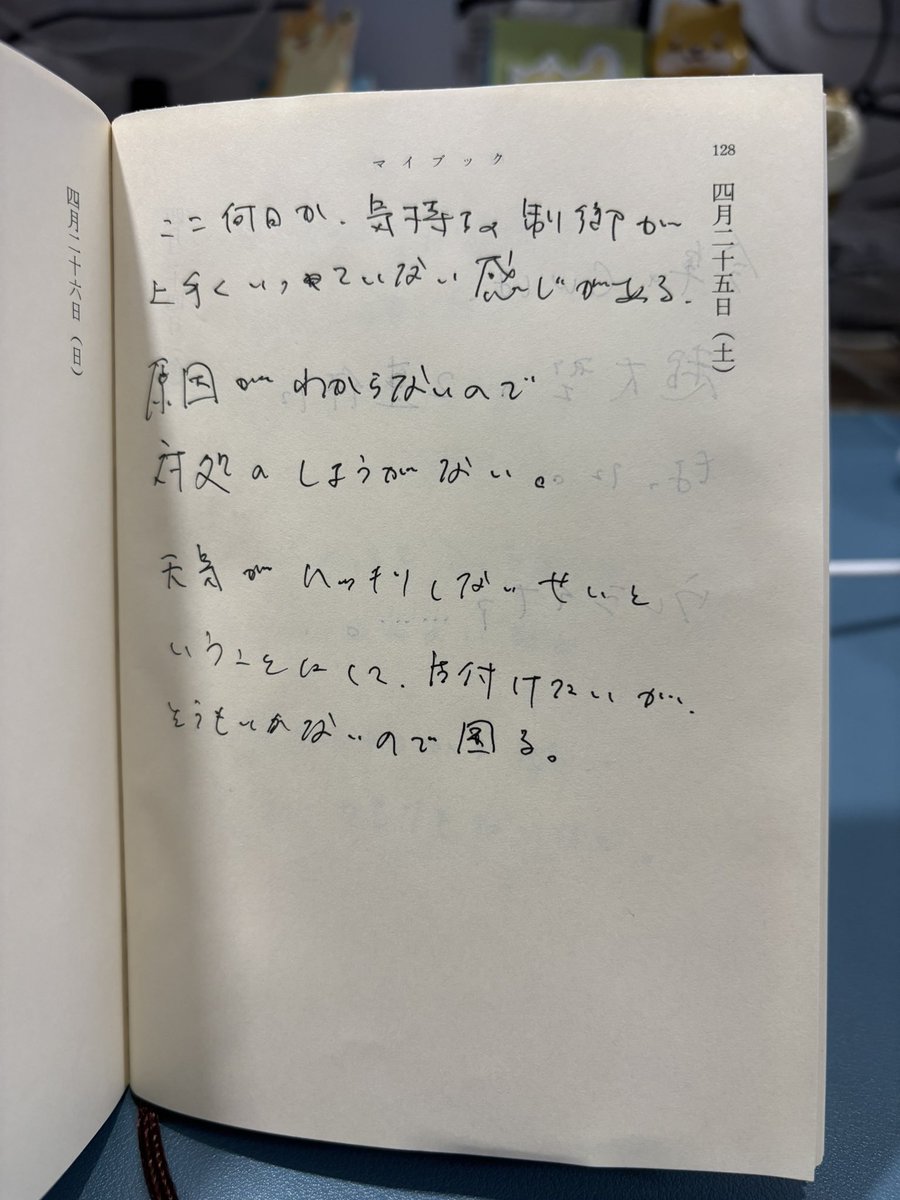 マイブック
128
四月二十五日(土)
ここ何日か、気持ちの制御が
上手くいっていない感じがある.
原因がわからないので
対処のしようがない。
天気がハッキリしないせいと
いうことにして、片付けたいが、
そうもいかないので困る。
四月二十六日(日)